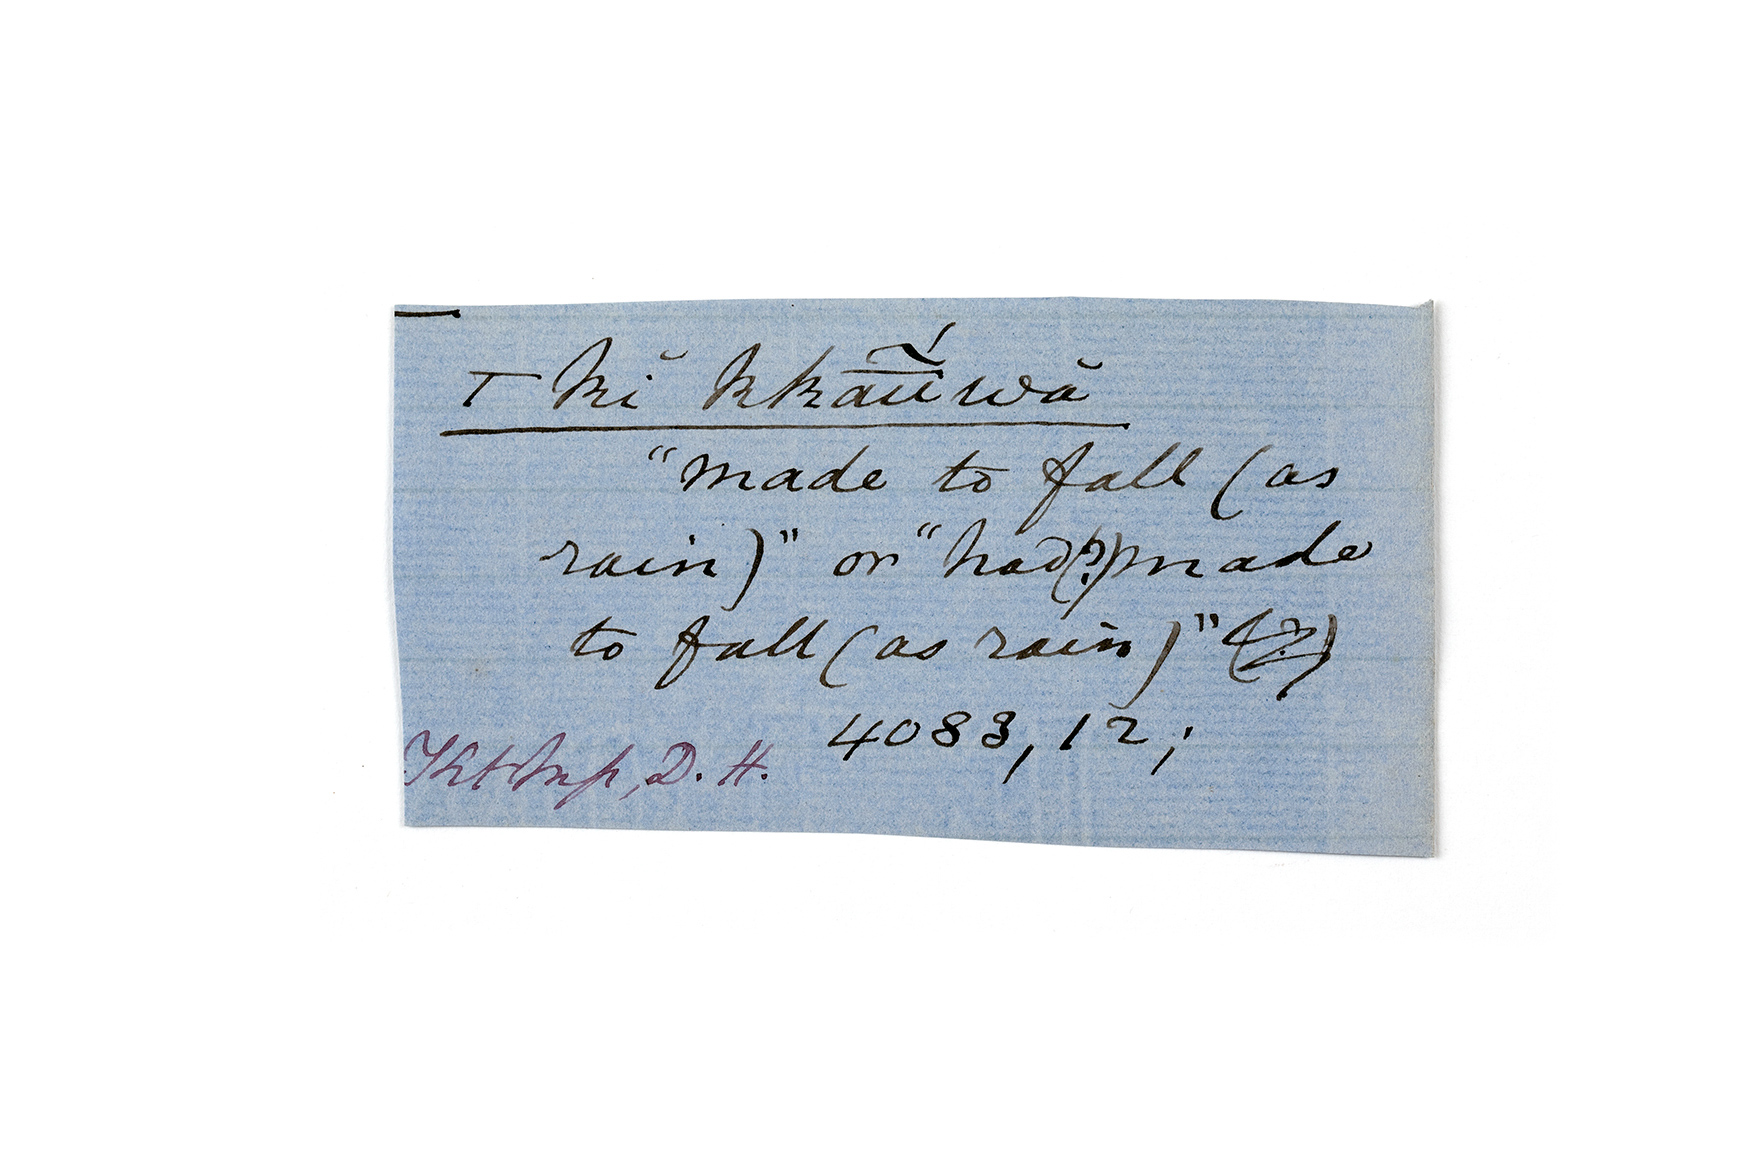 ⊤ kĭ kkā̰́ŭwă
"made to fall (as
rain)" or "had(?) made
to fall (as rain)" (?)
4083, 12;
D. H.